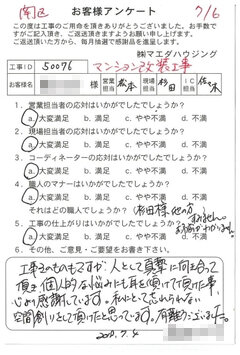 関区
お客様アンケート
7/6
この度は工事のご用命を頂きありがとうございました。お手数で
すがご記入頂き、ご返送頂きますようお願い申し上げます。
ご返送頂いた方から、毎月抽選で感謝品を進呈します。
㈱マエダハウジング
工事ID 50076 マンション改装工事
お客様名 営業担当 松本 現場担当 杉田 IC担当 佐々木
1. 営業担当者の応対はいかがでしたでしょうか？
a. 大変満足 b. 満足 c. やや不満 d. 不満
2. 現場担当者の応対はいかがでしたでしょうか？
a. 大変満足 b. 満足 c. やや不満 d. 不満
3. コーディネーターの応対はいかがでしたでしょうか？
a. 大変満足 b. 満足 c. やや不満 d. 不満
4. 職人のマナーはいかがでしたでしょうか？
a. 大変満足 b. 満足 c. やや不満 d. 不満
それはどの職人でしょうか？（杉田様、他の方
5. 工事の仕上がりはいかがでしたでしょうか？
a. 大変満足 b. 満足 c. やや不満 d. 不満
6. その他、ご意見・ご要望をお書き下さい。
工事そのものもですが、人として真摯に向き合って
頂き、個人的な悩みにも耳を傾けて頂けた事、
心より感謝しています。私にとって忘れられない
空間創りとして頂けたと思っています。有難うございました。
7.4